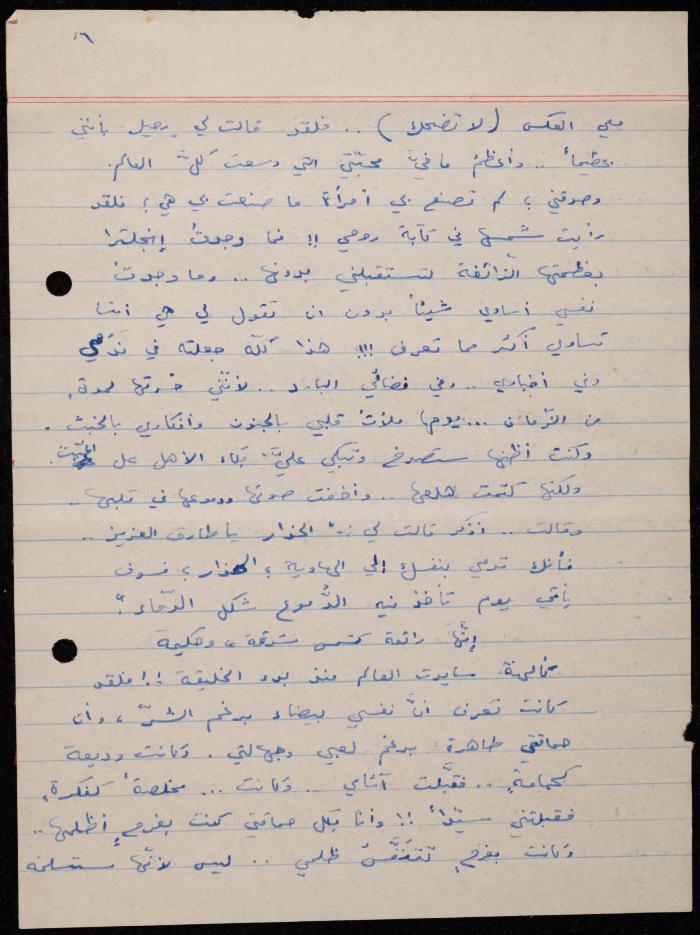 ٦
على العكس (لا تضحك) .. فلقد قالت لي رحيل بأنني
عظيماً .. وأعظمُ ما فيَّ محبّتي التي وسعت كلَّ العالم.
وصدقني ؛ لم تصنع بي امرأة ما صنعت بي هي ؛ فلقد
رأيت شمسها في كآبة روحي !! فما وجدتُ إنجلترا
بعظمتها الزائفة لتستقبلني بدونها .. وما وجدتُ
نفسي أساوي شيئاً بدون ان تقول لي هي انتَ
تساوي أكثر مما تعرف !!! هذا كلّه جعلته في
وفي أخباري .. وفي فضائي البارد .. لأنّني خُنتها لمدةٍ
من الزّمان ... يومها ملأتُ قلبي بالجنون وأفكاري بالخبث .
وكنت أظنها ستصرخ وتبكي عليَّ بكاء الأهل على الميّت
ولكنها كتمت هلعها .. وأخفت صوتها ودموعها في قلبها ..
وقالت .. اذكر قالت لي :ـ " الحذار يا طارق العزيز ..
فأنك ترمي بنفسك إلي الهاوية ؛ الحذار ؛ فسوف
يأتي يوم تأخذ فيه الدُّموع شكل الدّماء "!
إنّها رائعة كشمس مشرقة ، وحكيمة
كألهة سايرت العالم منذ بدء الخليقة !! فلقد
كانت تعرف انَّ نفسي بيضاء برغم الشرّ ، وأن
حماقتي طاهرة برغم لعبي وجهالتي . وكانت وديعة
كحمامةٍ .. فقبَّلت آثامي .. وكانت ... مخلصةً كفكرةٍ
فقبلتني سيّداً !! وأنا بكل حماقتي كنت بفرحٍ أظلمها ..
وكانت بفرحٍ تتنفّسُ ظلمي .. ليس لأنّها مستسلمة